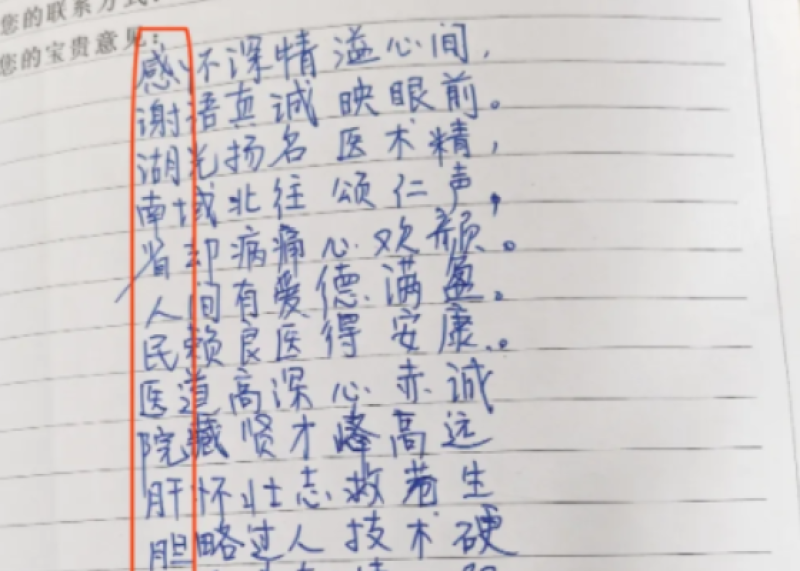 您的联系方式：
您的宝贵意见：
感怀深情溢心间，
谢语真诚映眼前。
湖光扬名医术精，
南域北往颂仁声，
省却病痛心欢颜。
人间有爱德满盈。
民赖良医得安康。
医道高深心赤诚
院藏贤才攀高远
肝怀壮志救苍生
胆略过人技术硬